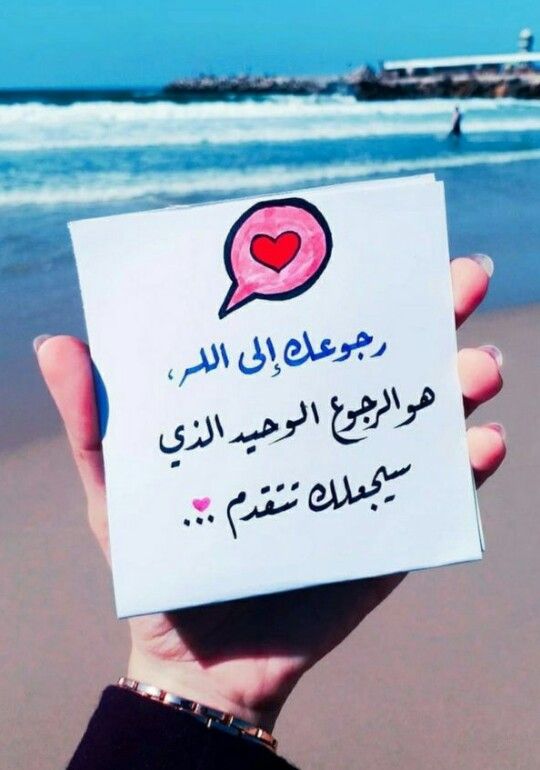 رجوعك إلى الله،
هو الرجوع الوحيد الذي
سيجعلك تتقدم ...